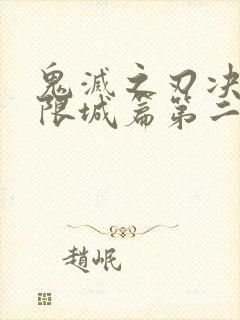 鬼滅之刃决
限城篇第二
趙岷